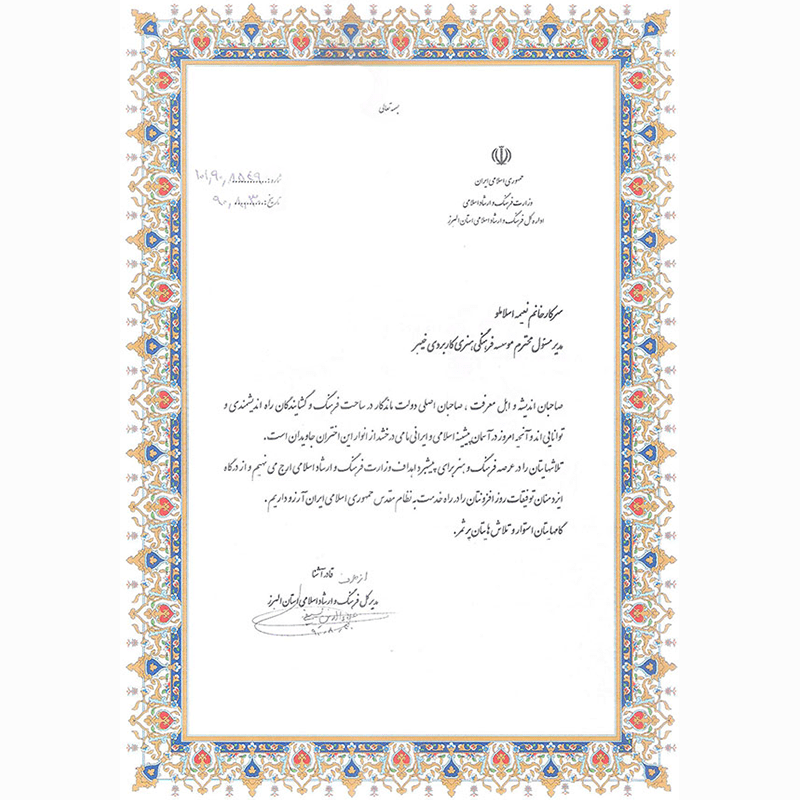 بسمه تعالی
جمهوری اسلامی ایران
وزارت فرهنگ و ارشاد اسلامی
اداره کل فرهنگ و ارشاد اسلامی استان البرز
شماره:
تاریخ:
سرکار خانم نعیمه اسلاملو
مدیر مسئول محترم موسسه فرهنگی هنری کاربردی خیبر
صاحبان اندیشه و اهل معرفت ، صاحبان اصلی دولت ماندگار در ساحت فرهنگ و گشایندگان راه اندیشمندی و
توانایی اند و آنچه امروز در آسمان پیشینه اسلامی و ایرانی ما می درخشد از انوار این اختران جاویدان است.
تلاشهایتان را در عرصه فرهنگ و هنر برای پیشبرد اهداف وزارت فرهنگ و ارشاد اسلامی ارج می نهیم و از درگاه
ایزد منان توفیقات روز افزونتان را در راه خدمت به نظام مقدس جمهوری اسلامی ایران آرزو داریم.
گامهایتان استوار و تلاش هایتان پر ثمر.
از طرف قادر آشنا
مدیر کل فرهنگ و ارشاد اسلامی استان البرز